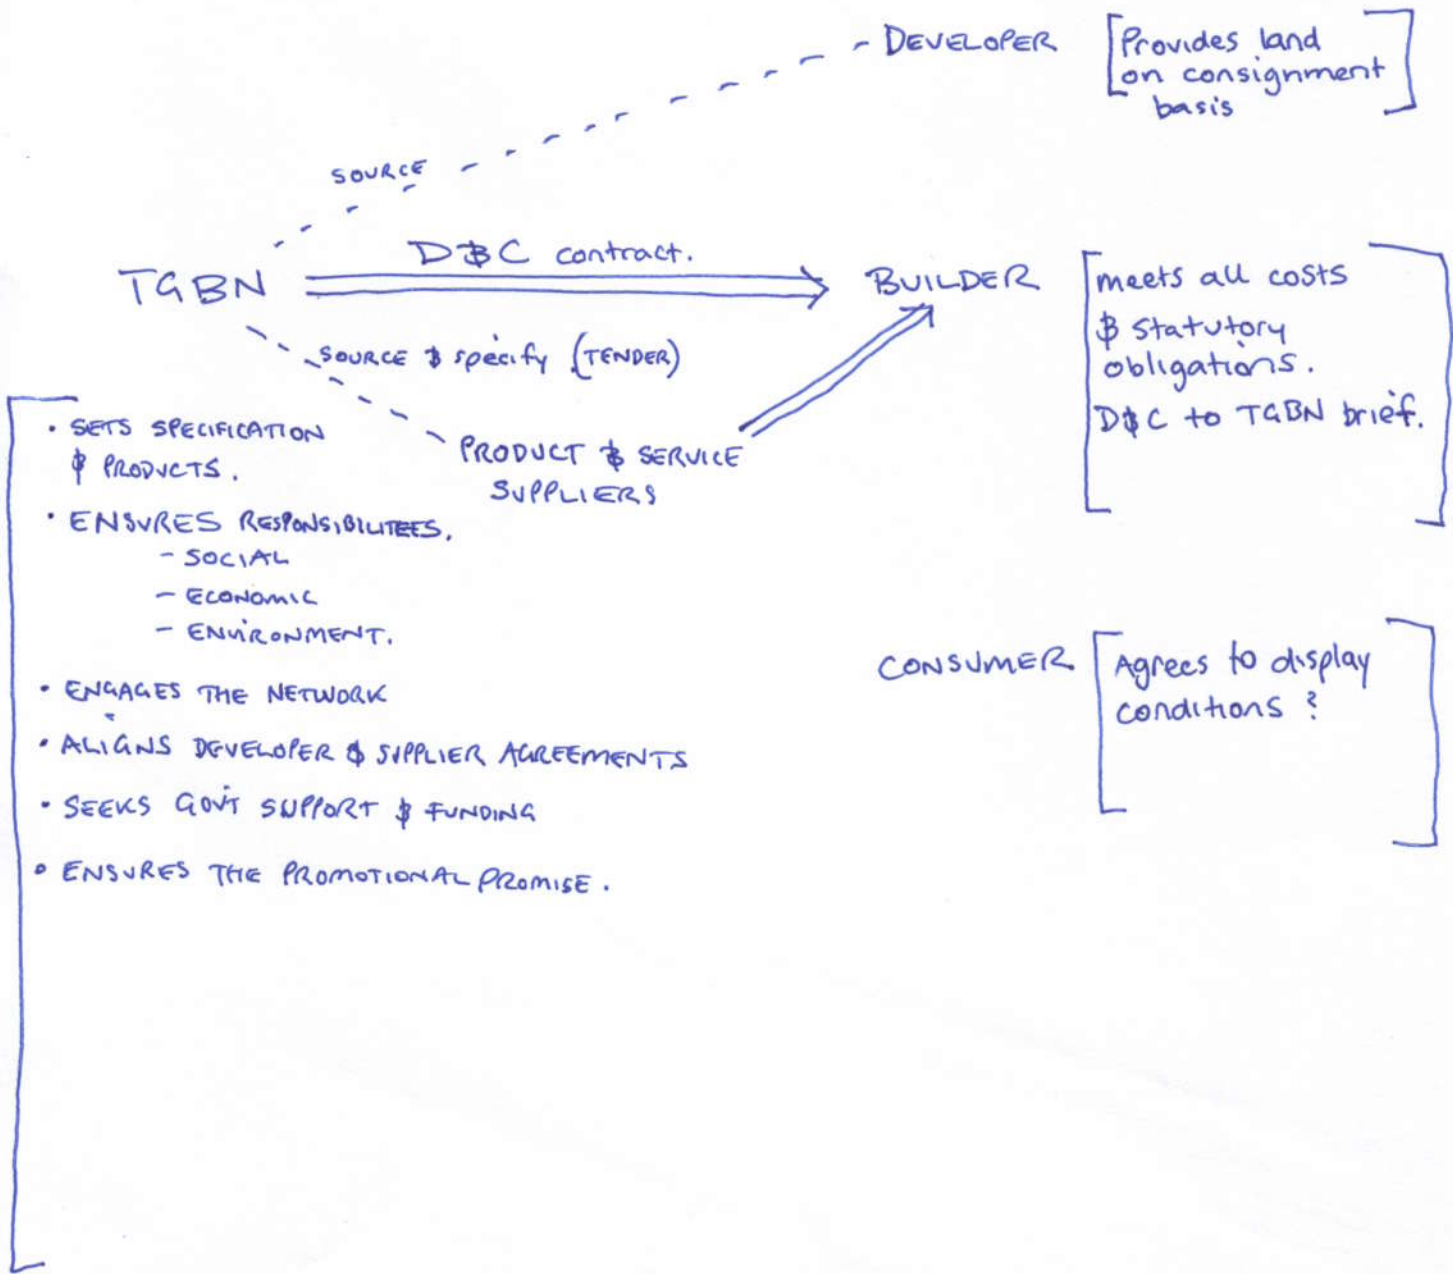 DEVELOPER
[Provides land
on consignment
basis]
SOURCE
D&C contract.
TGBN
BUILDER
[meets all costs
& statutory
obligations.
D&C to TGBN brief.]
SOURCE & specify (TENDER)
PRODUCT & SERVICE
SUPPLIERS
• SETS SPECIFICATION
& PRODUCTS.
• ENSURES RESPONSIBILITEES.
- SOCIAL
- ECONOMIC
- ENVIRONMENT.
• ENGAGES THE NETWORK
• ALIGNS DEVELOPER & SUPPLIER AGREEMENTS
• SEEKS GOV'T SUPPORT & FUNDING
• ENSURES THE PROMOTIONAL PROMISE.
CONSUMER
[Agrees to display
conditions ?]